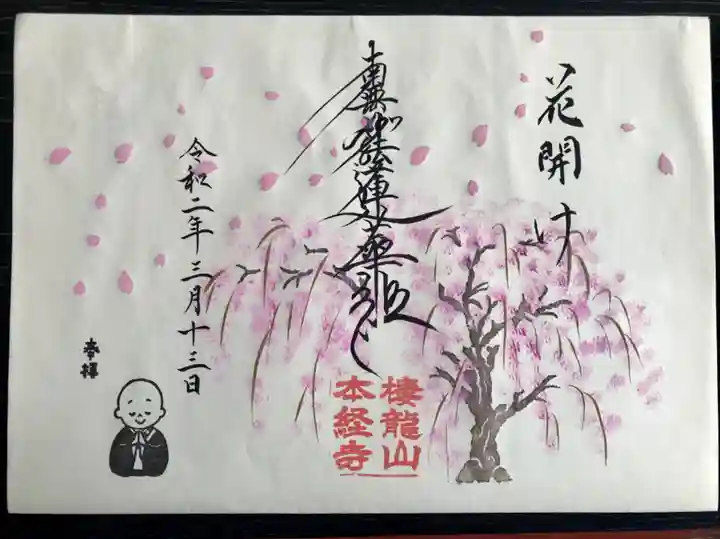 花開け
南無妙法蓮華経
棲龍山
本経寺
令和二年三月十三日
奉拝